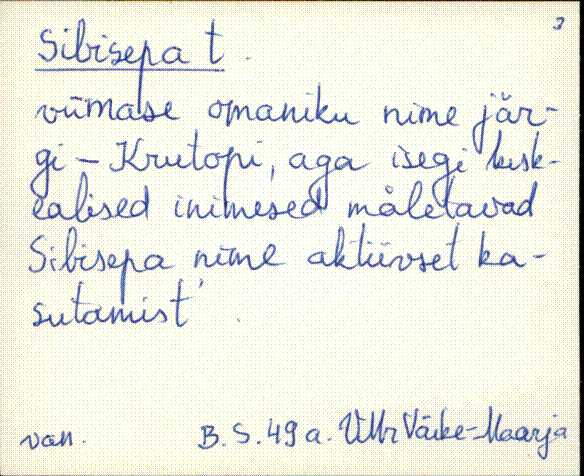 3
Sibisepa t.
viimase omaniku nime jär-
gi – Krutopi, aga isegi kesk-
ealised inimesed mäletavad
Sibisepa nime aktiivset ka-
sutamist
van. B. S. 49 a. VMr Väike-Maarja